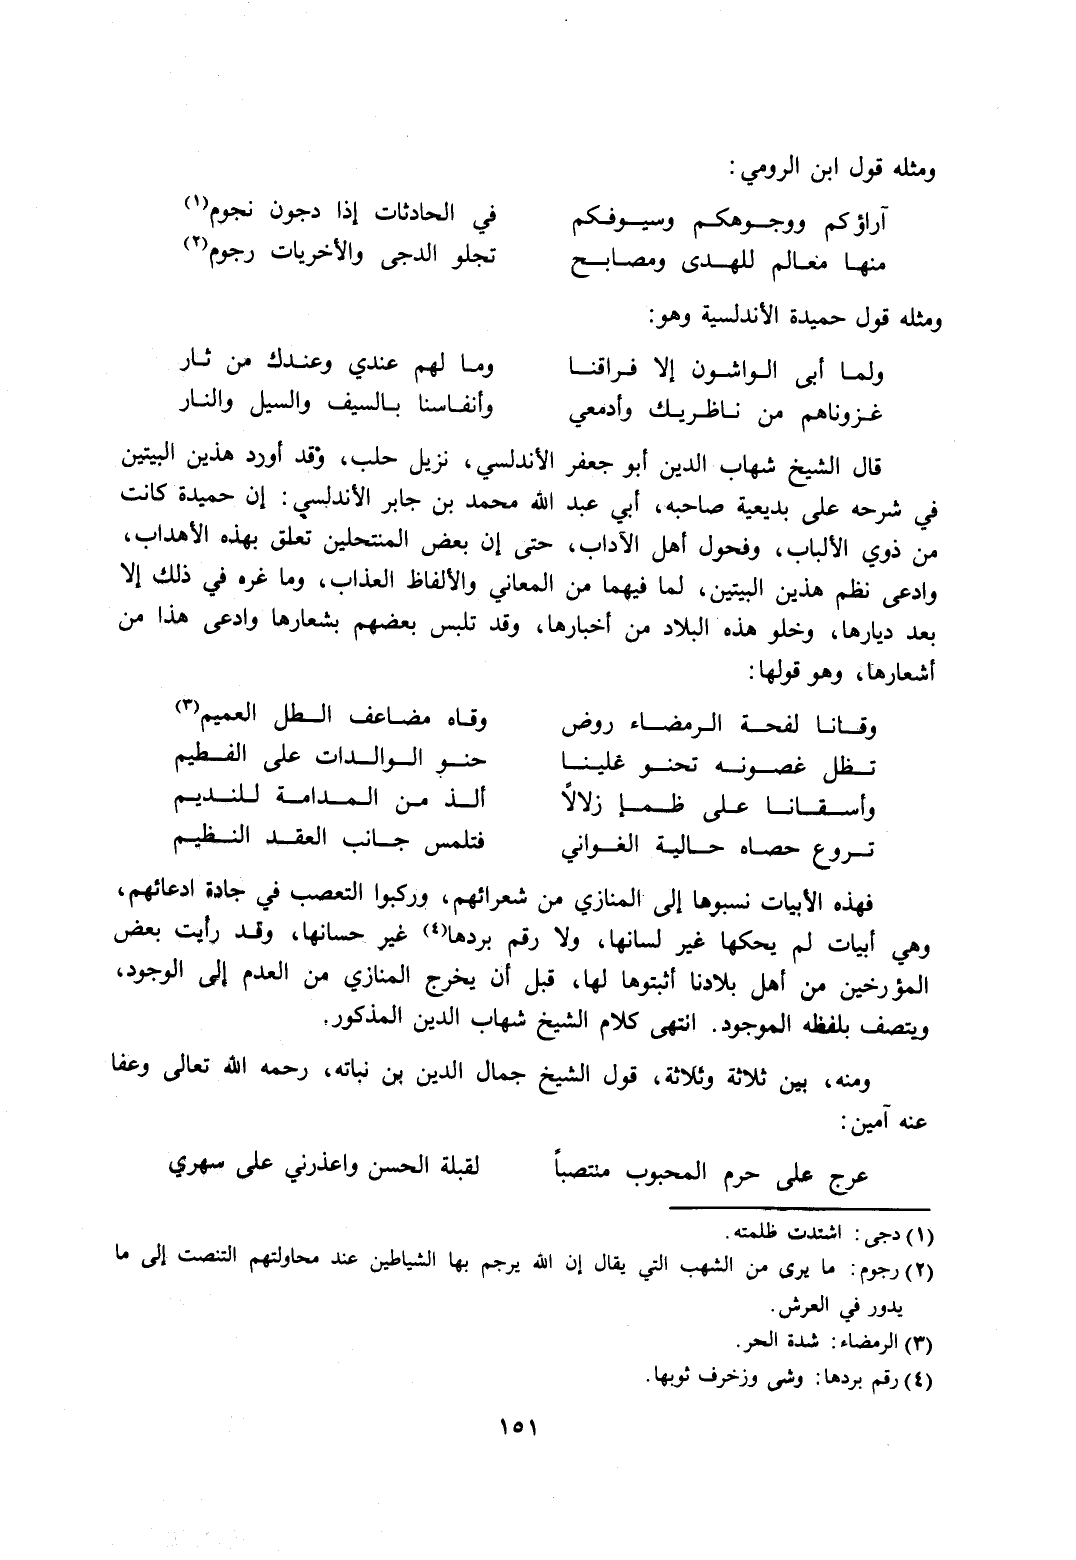 ومثله قول ابن الرومي:
آراؤكم ووجوهكم وسيوفكم في الحادثات إذا دجون نجوم(١)
منها معالم للهدى ومصابح تجلو الدجى والأخريات رجوم(٢)
ومثله قول حميدة الأندلسية وهو:
ولما أبى الواشون إلا فراقنا وما لهم عندي وعندك من ثار
غزوناهم من ناظريك وأدمعي وأنفاسنا بالسيف والسيل والنار
قال الشيخ شهاب الدين أبو جعفر الأندلسي، نزيل حلب، وقد أورد هذين البيتين
في شرحه على بديعية صاحبه، أبي عبد الله محمد بن جابر الأندلسي: إن حميدة كانت
من ذوي الألباب، وفحول أهل الآداب، حتى إن بعض المنتحلين تعلق بهذه الأهداب،
وادعى نظم هذين البيتين، لما فيهما من المعاني والألفاظ العذاب، وما غره في ذلك إلا
بعد ديارها، وخلو هذه البلاد من أخبارها، وقد تلبس بعضهم بشعارها وادعى هذا من
أشعارها، وهو قولها:
وقانا لفحة الرمضاء روض وقاه مضاعف الطل العميم(٣)
تظل غصونه تحنو علينا حنو الوالدات على الفطيم
وأسقانا على ظمإ زلالاً ألذ من المدامة للنديم
تروع حصاه حالية الغواني فتلمس جانب العقد النظيم
فهذه الأبيات نسبوها إلى المنازي من شعرائهم، وركبوا التعصب في جادة ادعائهم،
وهي أبيات لم يحكها غير لسانها، ولا رقم بردها(٤) غير حسانها، وقد رأيت بعض
المؤرخين من أهل بلادنا أثبتوها لها، قبل أن يخرج المنازي من العدم إلى الوجود،
ويتصف بلفظه الموجود. انتهى كلام الشيخ شهاب الدين المذكور.
ومنه، بين ثلاثة وثلاثة، قول الشيخ جمال الدين بن نباته، رحمه الله تعالى وعفا
عنه آمين:
عرج على حرم المحبوب منتصباً لقبلة الحسن واعذرني على سهري
(١) دجى: اشتدت ظلمته.
(٢) رجوم: ما يرى من الشهب التي يقال إن الله يرجم بها الشياطين عند محاولتهم التنصت إلى ما
يدور في العرش.
(٣) الرمضاء: شدة الحر.
(٤) رقم بردها: وشى وزخرف ثوبها.
١٥١